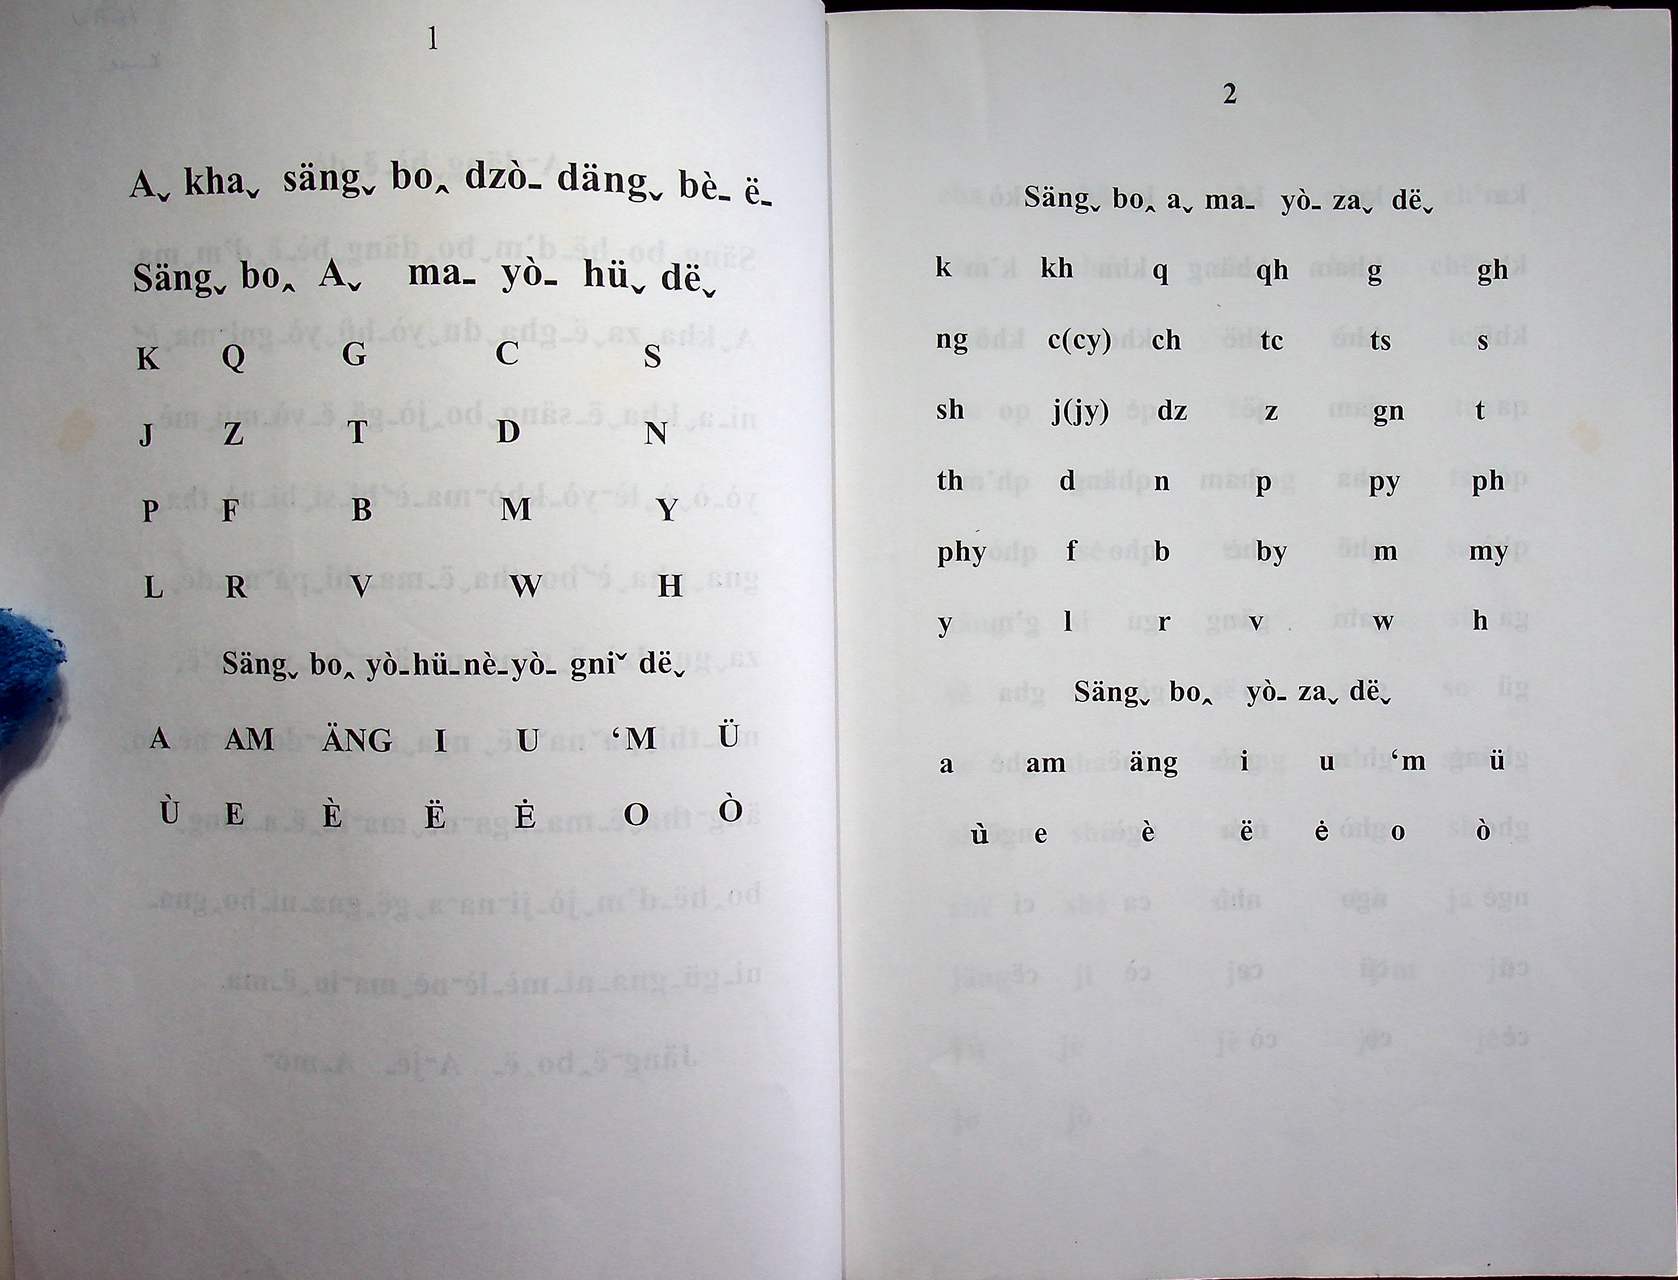 1
Aˬ khaˬ sängˬ bo‸ dzò₋ dängˬ bè₋ ë₋
Sängˬ bo‸ Aˬ ma₋ yò₋ hüˬ dëˬ
K Q G C S
J Z T D N
P F B M Y
L R V W H
Sängˬ bo‸ yò₋hü₋nè₋yò₋ gniˇ dëˬ
A AM ÄNG I U ‘M Ü
Ù E È Ë Ė O Ò
2
Sängˬ bo‸ aˬ ma₋ yò₋ zaˬ dëˬ
k kh q qh g gh
ng c(cy) ch tc ts s
sh j(jy) dz z gn t
th d n p py ph
phy f b by m my
y l r v w h
Sängˬ bo‸ yò₋ zaˬ dëˬ
a am äng i u ‘m ü
ù e è ë ė o ò